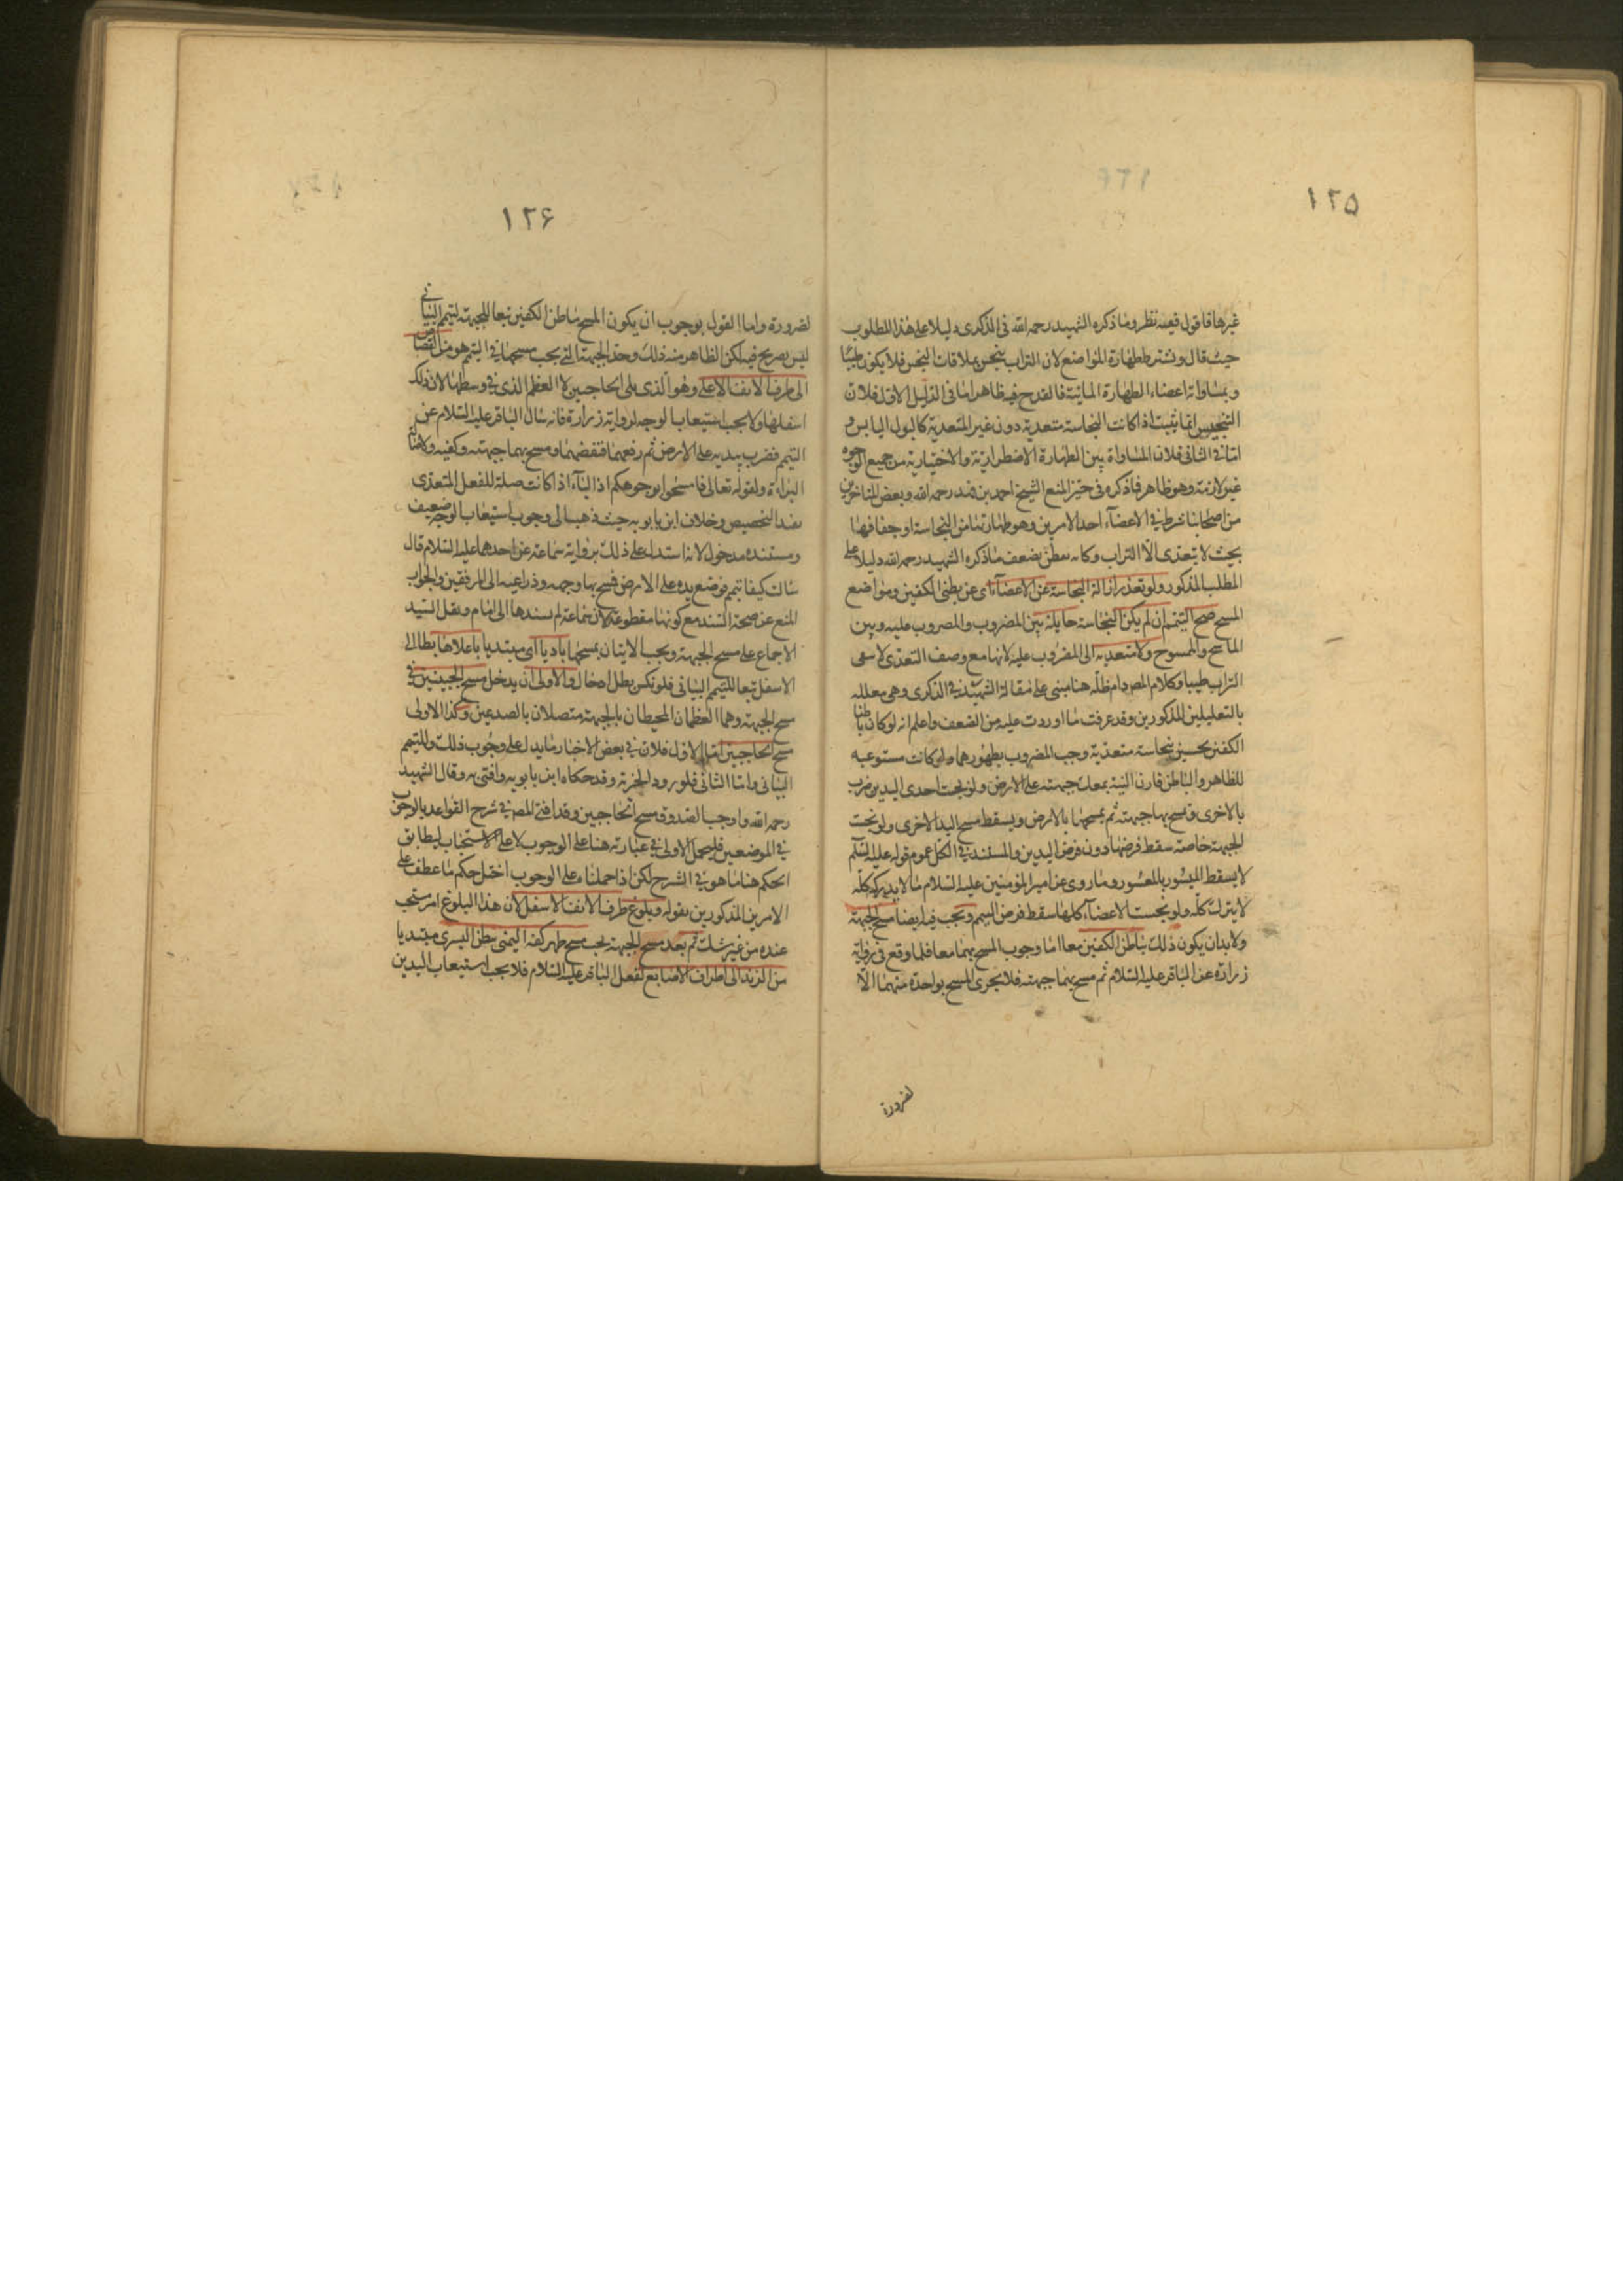 ١٢٥
غيرها فاقول فيه نظر وما ذكره الشهيد رحمه الله فى الذكرى دليلا على هذا المطلوب
حيث قال ويشترط طهارة المواضع لان التراب ينجس بملاقات النجس فلا يكون طيبا
وبمساواة اعضاء الطهارة المائية فالقدح فيه ظاهر اما فى الدليل الاول فلان
التنجيس انما يثبت اذا كانت النجاسة متعدية دون غير المتعدية كالبول اليابس و
اما فى الثانى فلان المساواة بين الطهارة الاضطرارية والاختيارية من جميع الوجوه
غير لازمة وهو ظاهر فما ذكره فى حيز المنع الشيخ احمد بن فهد رحمه الله وبعض المتاخرين
من اصحابنا شرط فى الاعضاء احد الامرين وهو طهارتها من النجاسة او جفافها
بحيث لا يتعدى الى التراب وكانه تفطن بضعف ما ذكره الشهيد رحمه الله دليلا على
المطلب المذكور ولو تعذر ازالة النجاسة عن الاعضاء اى عن بطنى الكفين ومواضع
المسح صح التيمم ان لم يكن النجاسة حايلة بين المضروب والمضروب عليه وبين
الماسح والممسوح ولا متعدية الى المضروب عليه لانها مع وصف التعدى لا يبقى
التراب طيبا وكلام المصـ دام ظله هنا مبنى على مقالة الشهيد فى الذكرى وهى معللة
بالتعليلين المذكورين وقد عرفت ما اوردت عليه من الضعف واعلم انه لو كان باطنا
الكفين نجسين بنجاسة متعدية وجب الضرب بظهورهما ولو كانت مستوعبة
للظاهر والباطن قارن النية بمعك جبهته على الارض ولو نجست احدى اليدين ضرب
بالاخرى ومسح بها جبهته ثم يمسحها بالارض ويسقط مسح اليد الاخرى ولو نجست
الجبهة خاصة سقط فرضها دون فرض اليدين والمستند فى الكل عموم قوله عليه السلم
لا يسقط الميسور بالمعسور وما روى عن امير المؤمنين عليه السلام ما لا يدرك كله
لا يترك كله ولو نجست الاعضاء كلها سقط فرض التيمم ويجب فيه ايضا مسح الجبهة
ولا بد ان يكون ذلك بباطن الكفين معا اما وجوب المسح بهما معا فلما وقع فى رواية
زرارة عن الباقر عليه السلام ثم مسح بهما جبهته فلا يجزى المسح بواحدة منهما الا
لضرورة
١٢۶
لضرورة واما القول بوجوب ان يكون المسح بباطن الكفين تبعا للجبهة لتيمم البيانى
ليس بصريح فيه لكن الظاهر منه ذلك وحد الجبهة التى يجب مسحها فى التيمم هو من القصاص
الى طرف الانف الاعلى وهو الذى يلى الحاجبين لا العظم الذى فى وسطها لان ذلك
اسفلها ولا يجب استيعاب الوجه لرواية زرارة فانه سال الباقر عليه السلام عن
التيمم فضرب بيديه على الارض ثم رفعهما فنفضهما ومسح بهما جبهته وكفيه ولاصالة
البراءة ولقوله تعالى فامسحوا بوجوهكم اذ الباء اذا كانت صلة للفعل المتعدى
تفيد التبعيض وخلاف ابن بابويه حيث ذهب الى وجوب استيعاب الوجه ضعيف
ومستنده مدخول لانه استدل على ذلك برواية سماعة عن احدهما عليه السلام قال
سالت كيف اتيمم فوضع يده على الارض فمسح بها وجهه وذراعيه الى المرفقين والجواب
المنع عن صحة السند مع كونها مقطوعة لان سماعة لم يسندها الى امام ونقل السيد
الاجماع على مسح الجبهة ويجب الاتيان بمسحها باديا اى مبتديا باعلاها بطا الى
الاسفل تبعا للتيمم البيانى فلو نكس بطل اختيارا والاولى ان يدخل مسح الجبينين فى
مسح الجبهة وهما العظمان المحيطان بالجبهة متصلان بالصدغين وكذا الاولى
مسح الحاجبين اما الاول فلان فى بعض الاخبار ما يدل على وجوب ذلك وللتيمم
البيانى واما الثانى فلورود الخبر به وقد حكاه ابن بابويه وافتى به وقال الشهيد
رحمه الله واوجب الصدوق مسح الحاجبين وقد افتى المصـ فى شرح القواعد بالوجوب
فى الموضعين فليحمل الاولى فى عبارته هنا على الوجوب لا على الاستحباب ليطابق
الحكم هنا ما هو فى الشرح لكن اذا حملناه على الوجوب اختل حكم ما عطف على
الامرين المذكورين بقوله وبلوغ طرف الانف الاسفل لان هذا البلوغ امر مستحب
عنده من غير شك ثم بعد مسح الجبهة يجب مسح ظهر كفه اليمنى ببطن اليسرى مبتديا
من الزند الى اطراف الاصابع لفعل الباقر عليه السلام فلا يجب استيعاب اليدين